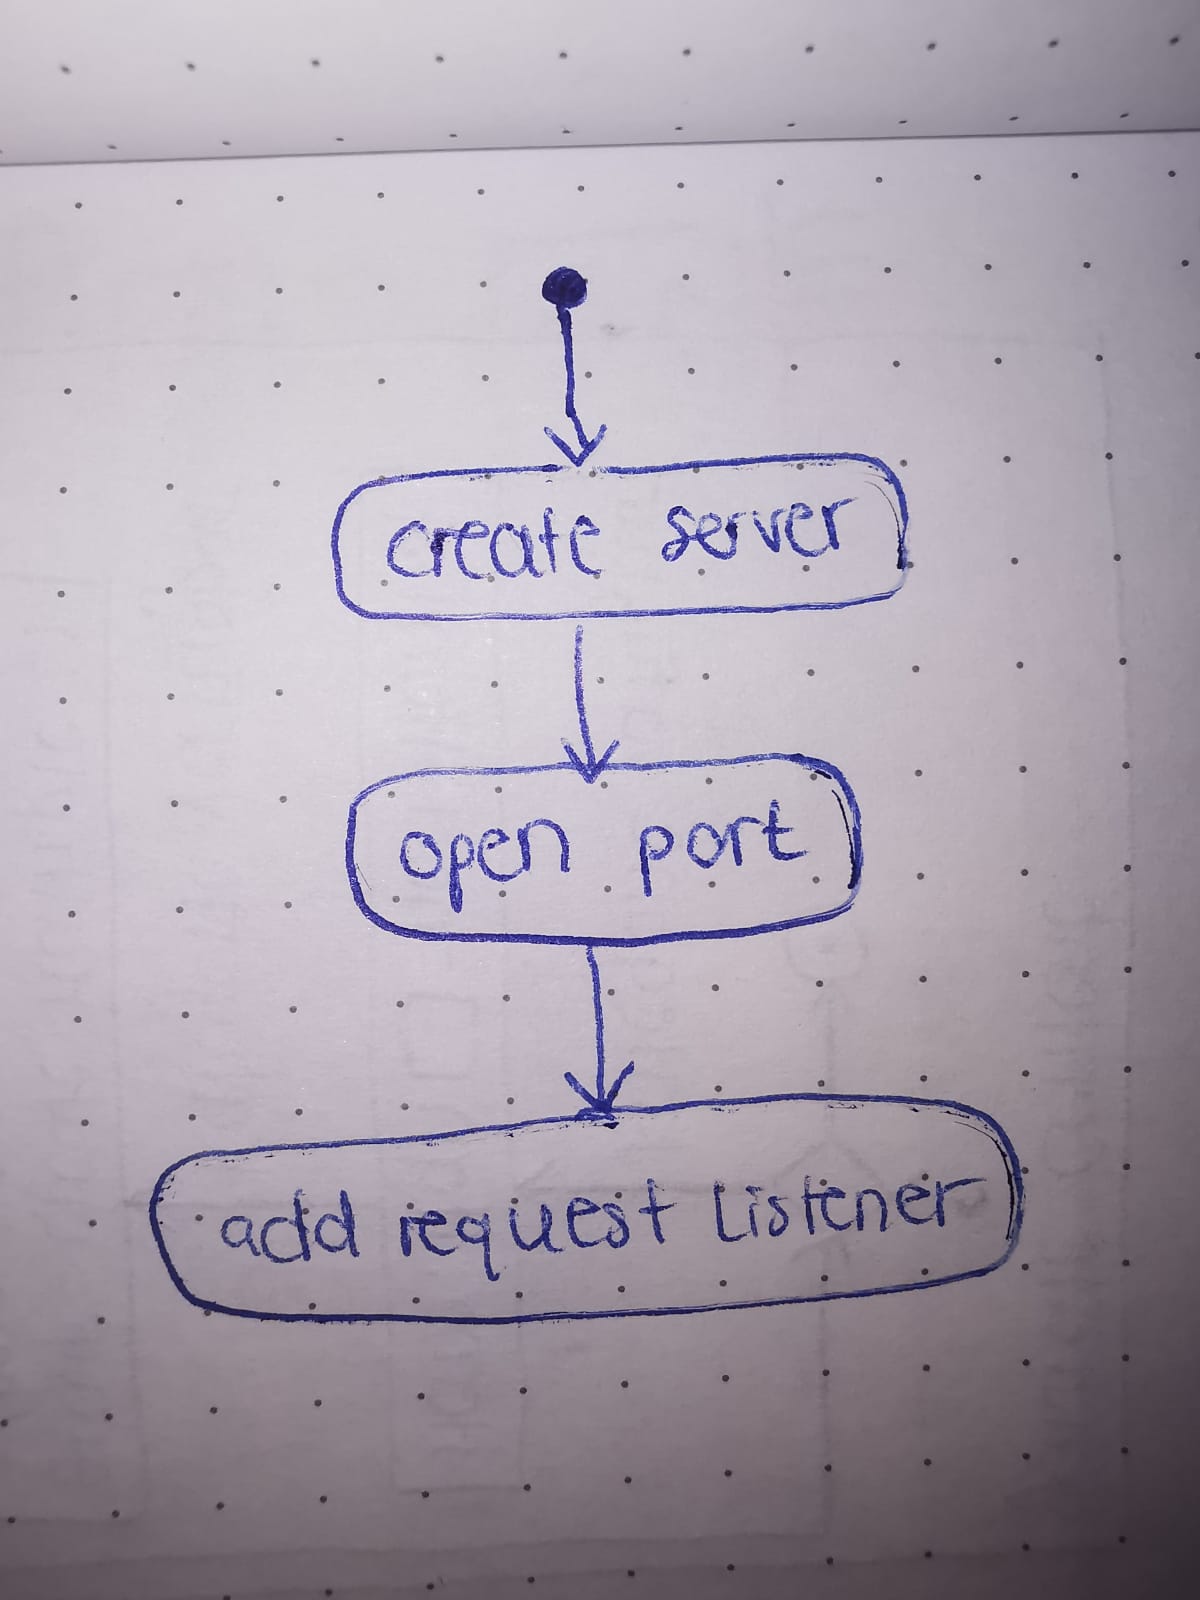 create server
open port
add request listener